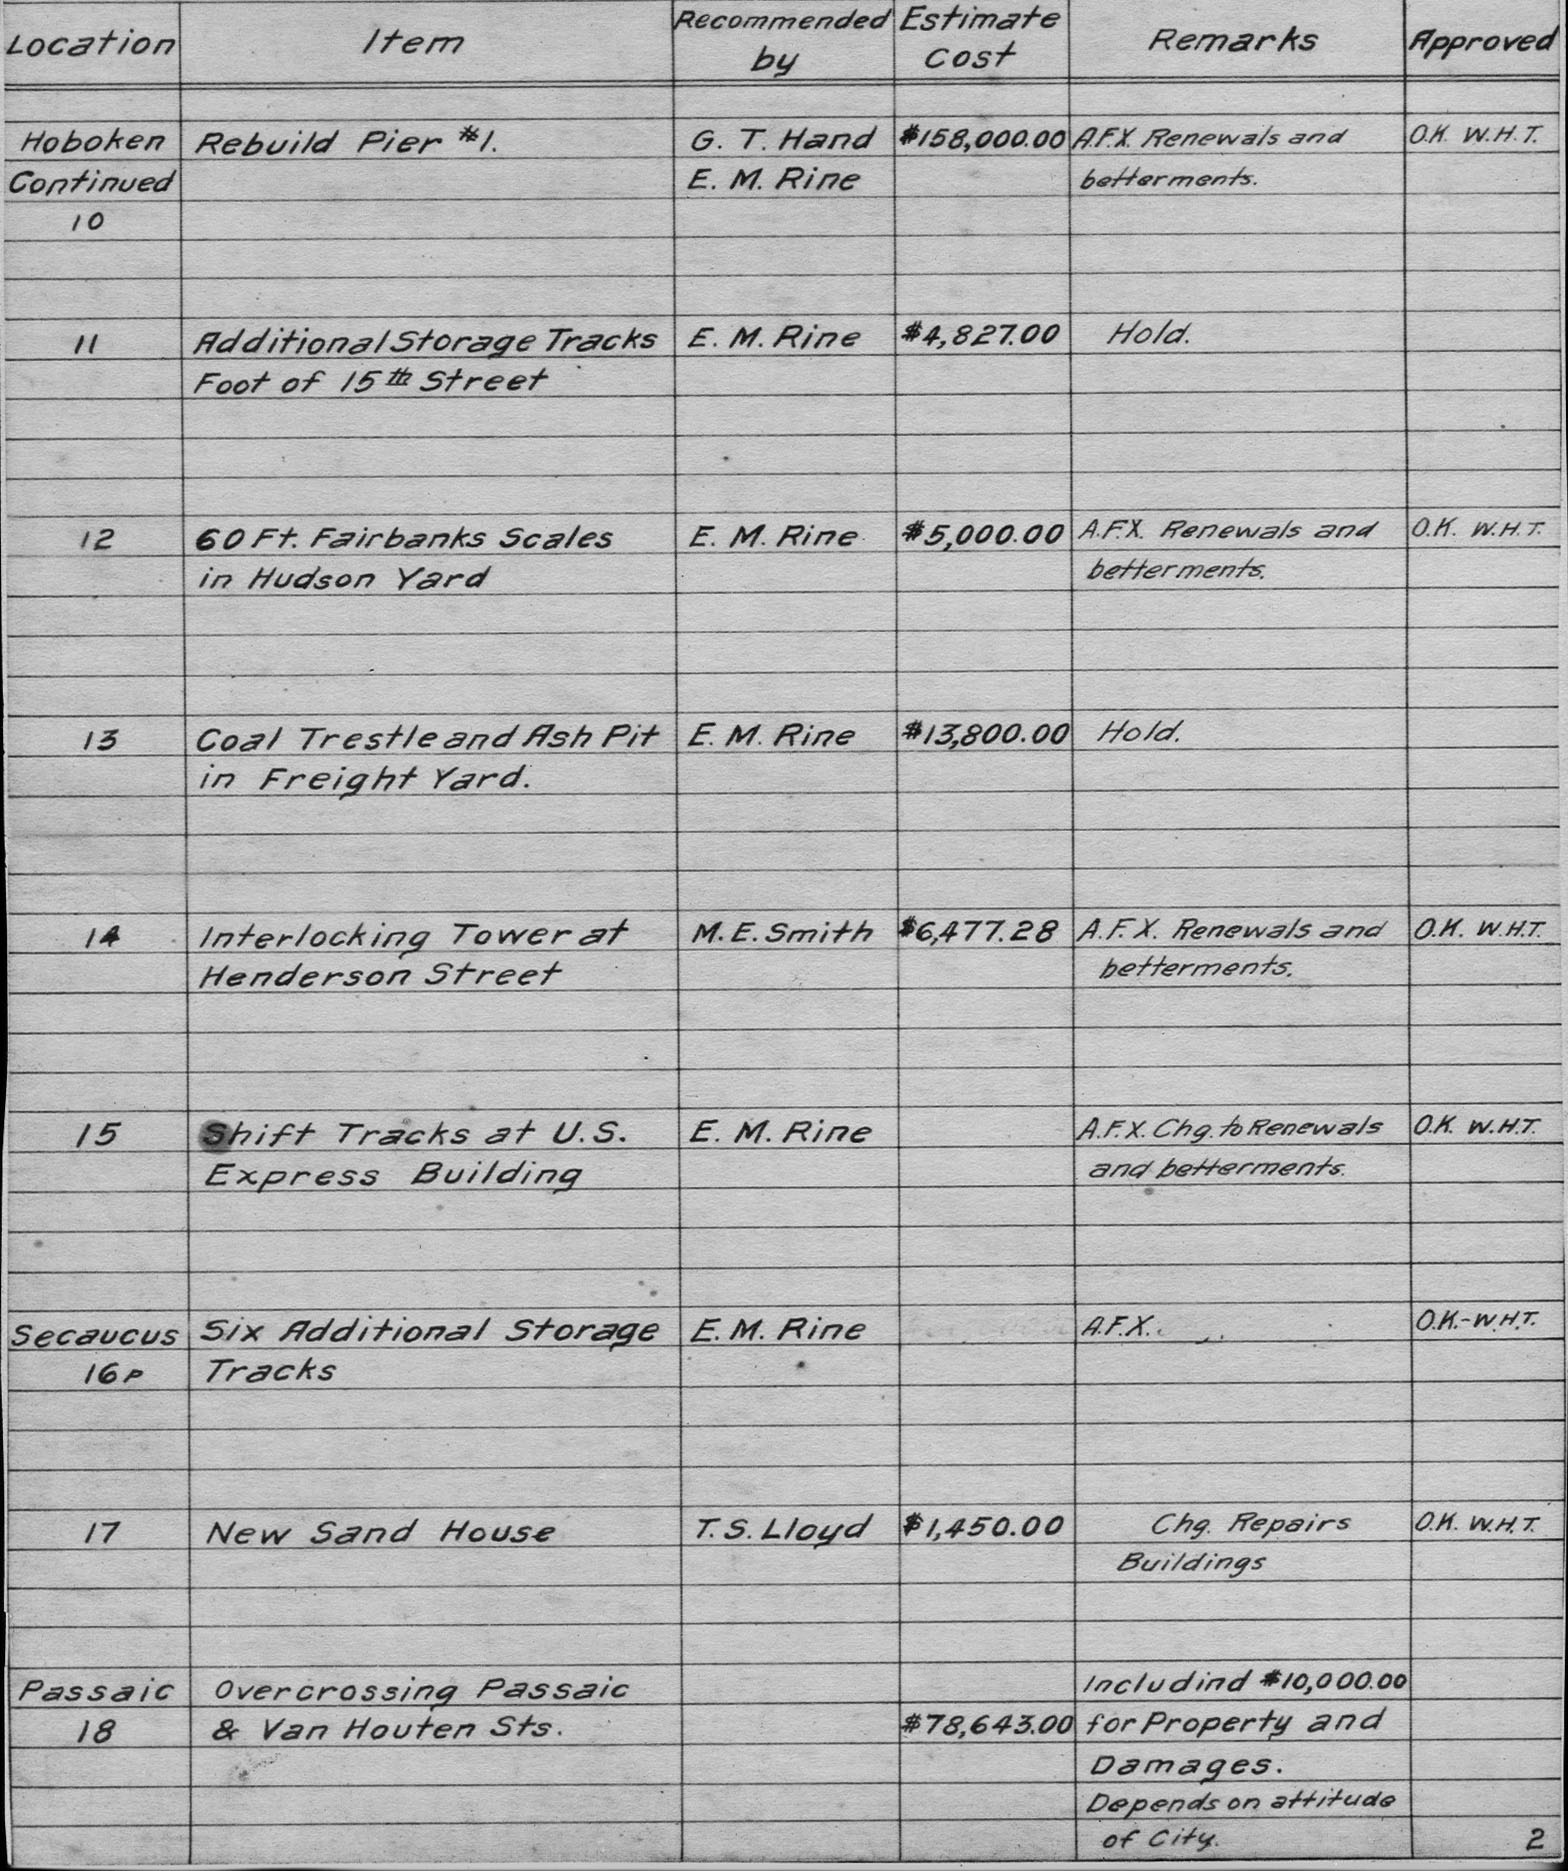 Location Item Recommended by Estimate Cost Remarks Approved
Hoboken Rebuild Pier #1. G. T. Hand $158,000.00 A.F.X. Renewals and O.K. W.H.T.
Continued E. M. Rine betterments.
10
11 Additional Storage Tracks E. M. Rine $4,827.00 Hold.
Foot of 15th Street
12 60 Ft. Fairbanks Scales E. M. Rine $5,000.00 A.F.X. Renewals and O.K. W.H.T.
in Hudson Yard betterments.
13 Coal Trestle and Ash Pit E. M. Rine $13,800.00 Hold.
in Freight Yard.
14 Interlocking Tower at M. E. Smith $6,477.28 A.F.X. Renewals and O.K. W.H.T.
Henderson Street betterments.
15 Shift Tracks at U.S. E. M. Rine A.F.X. Chg. to Renewals O.K. W.H.T.
Express Building and betterments.
Secaucus Six Additional Storage E. M. Rine A.F.X. O.K.-W.H.T.
16P Tracks
17 New Sand House T. S. Lloyd $1,450.00 Chg. Repairs O.K. W.H.T.
Buildings
Passaic Overcrossing Passaic Includind $10,000.00
18 & Van Houten Sts. $78,643.00 for Property and
Damages.
Depends on attitude
of City. 2